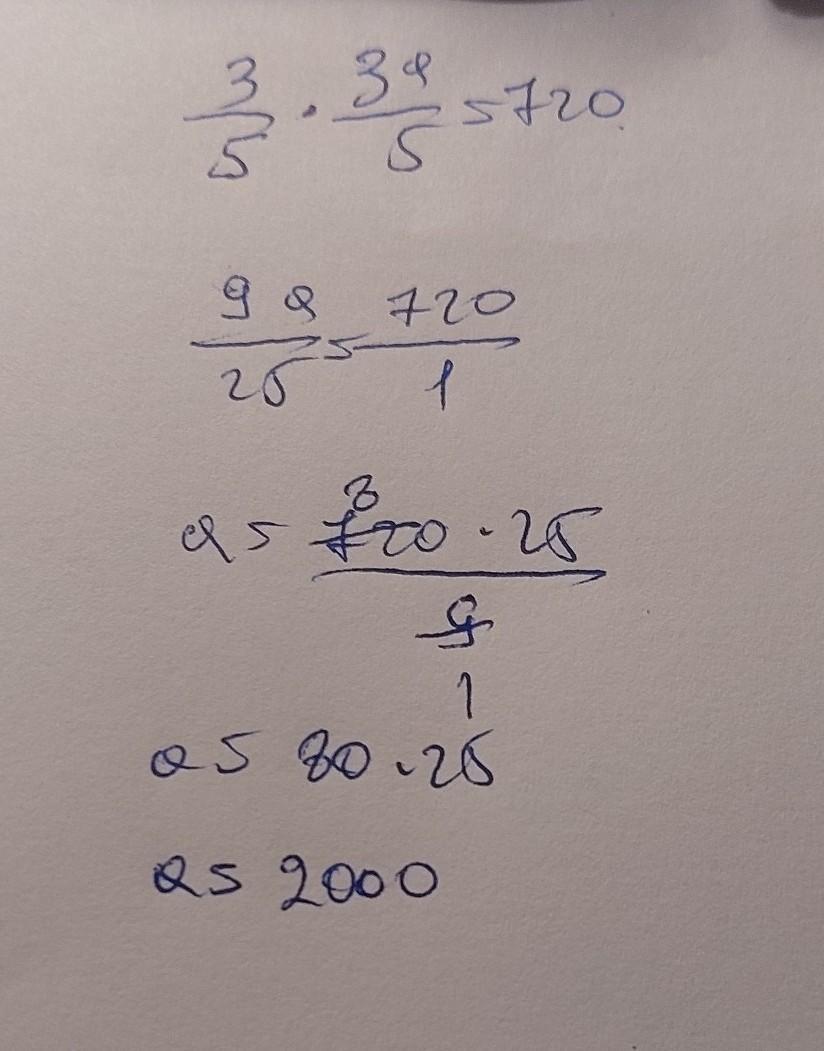 3/5 · 3a/5 = 720
9a/25 = 720/1
a = 720 · 25 / 9
8
1
a = 80 · 25
a = 2000